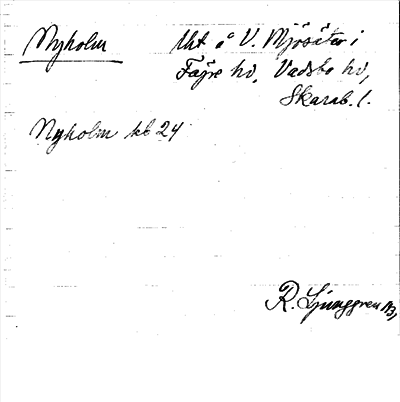 Nyholm
Uht å V. Mjösäter i
Fägre hd, Vadsbo hd,
Skarab. l.
Nyholm kb 24
R. Ljunggren 1931